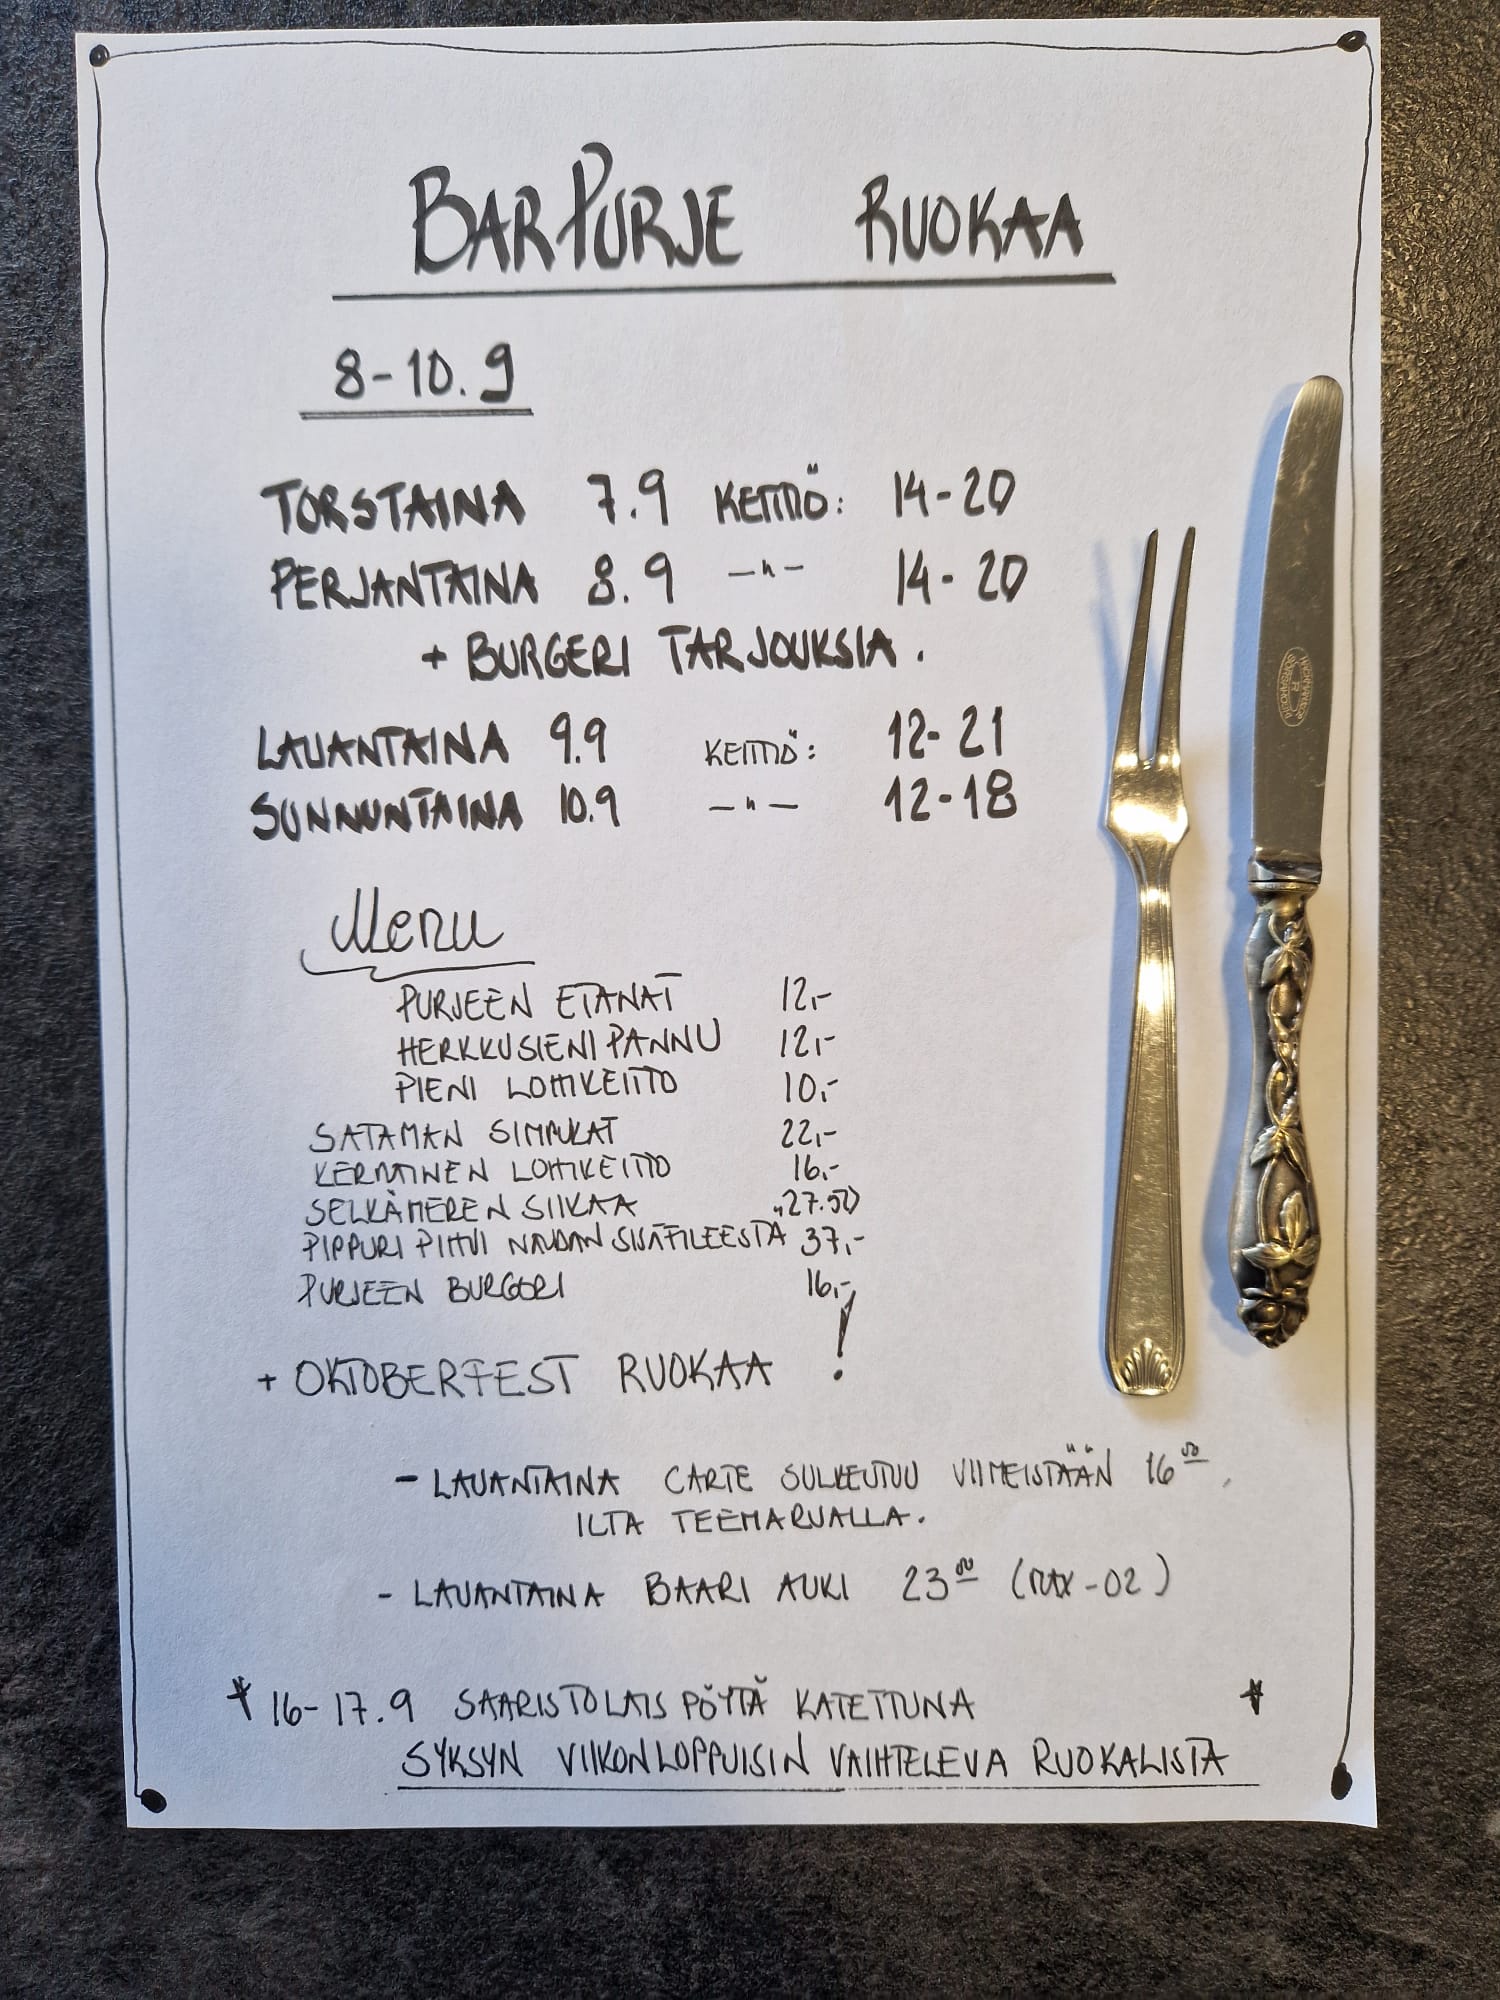 BARPURJE RUOKAA
8-10.9
TORSTAINA 7.9 KEITTIÖ: 14-20
PERJANTAINA 8.9 —"— 14-20
+ BURGERI TARJOUKSIA.
LAUANTAINA 9.9 KEITTIÖ: 12-21
SUNNUNTAINA 10.9 —"— 12-18
Menu
PURJEEN ETANAT 12,-
HERKKUSIENIPANNU 12,-
PIENI LOHIKEITTO 10,-
SATAMAN SIMPUKAT 22,-
KERMAINEN LOHIKEITTO 16,-
SELKÄMEREN SIIKAA 27.50
PIPPURI PIHVI NAUDAN SISÄFILEESTÄ 37,-
PURJEEN BURGERI 16,-
+ OKTOBERFEST RUOKAA !
- LAUANTAINA CARTE SULKEUTUU VIIMEISTÄÄN 16 00.
ILTA TEEMARUALLA.
- LAUANTAINA BAARI AUKI 23 00 (MAX -02)
* 16-17.9 SAARISTOLAIS PÖYTÄ KATETTUNA *
SYKSYN VIIKONLOPPUISIN VAIHTELEVA RUOKALISTA